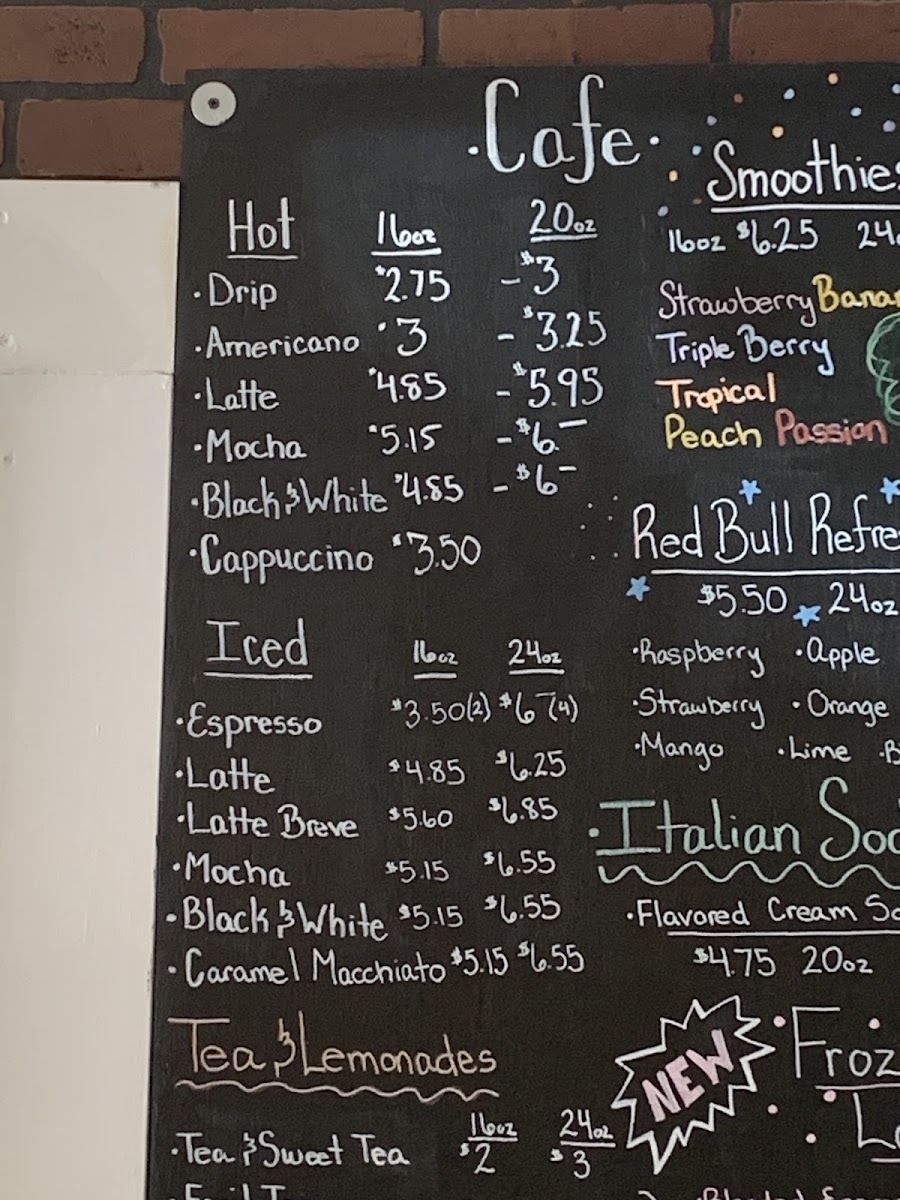 ·Cafe·
Hot 16oz 20oz
·Drip $2.75 - $3
·Americano $3 - $3.25
·Latte $4.85 - $5.95
·Mocha $5.15 - $6.-
·Black & White $4.85 - $6-
·Cappuccino $3.50
Iced 16oz 24oz
·Espresso $3.50(2) $6 (4)
·Latte $4.85 $6.25
·Latte Breve $5.60 $6.85
·Mocha $5.15 $6.55
·Black & White $5.15 $6.55
·Caramel Macchiato $5.15 $6.55
Tea & Lemonades
16oz 24oz
·Tea & Sweet Tea $2 $3
Smoothies
16oz $6.25 24
Strawberry Banan
Triple Berry
Tropical
Peach Passion
Red Bull Refre
$5.50 24oz
·Raspberry ·Apple
·Strawberry ·Orange
·Mango ·Lime ·B
·Italian Sod
·Flavored Cream So
$4.75 20oz
NEW
·Froz